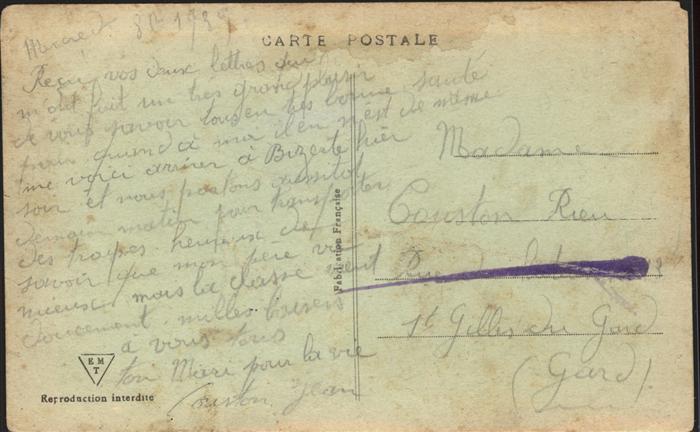 CARTE POSTALE
Mercredi 8bre 1939
Reçu vos deux lettres qui
m'ont fait un très grand plaisir
de vous savoir tous en très bonne santé
pour quand à moi il en n'est de même
me voici arriver à Bizerte hier
soir et nous partons aussitot
demain matin pour transporter
des troupes heureux de
savoir que mon père va
mieux mais la classe vient
doucement milles baisers
à vous tous
ton Mari pour la vie
Couston Jean
Madame
Couston Rieu
Rue de
St Gilles du Gard
(Gard).
Fabrication Française
EMT
Reproduction interdite